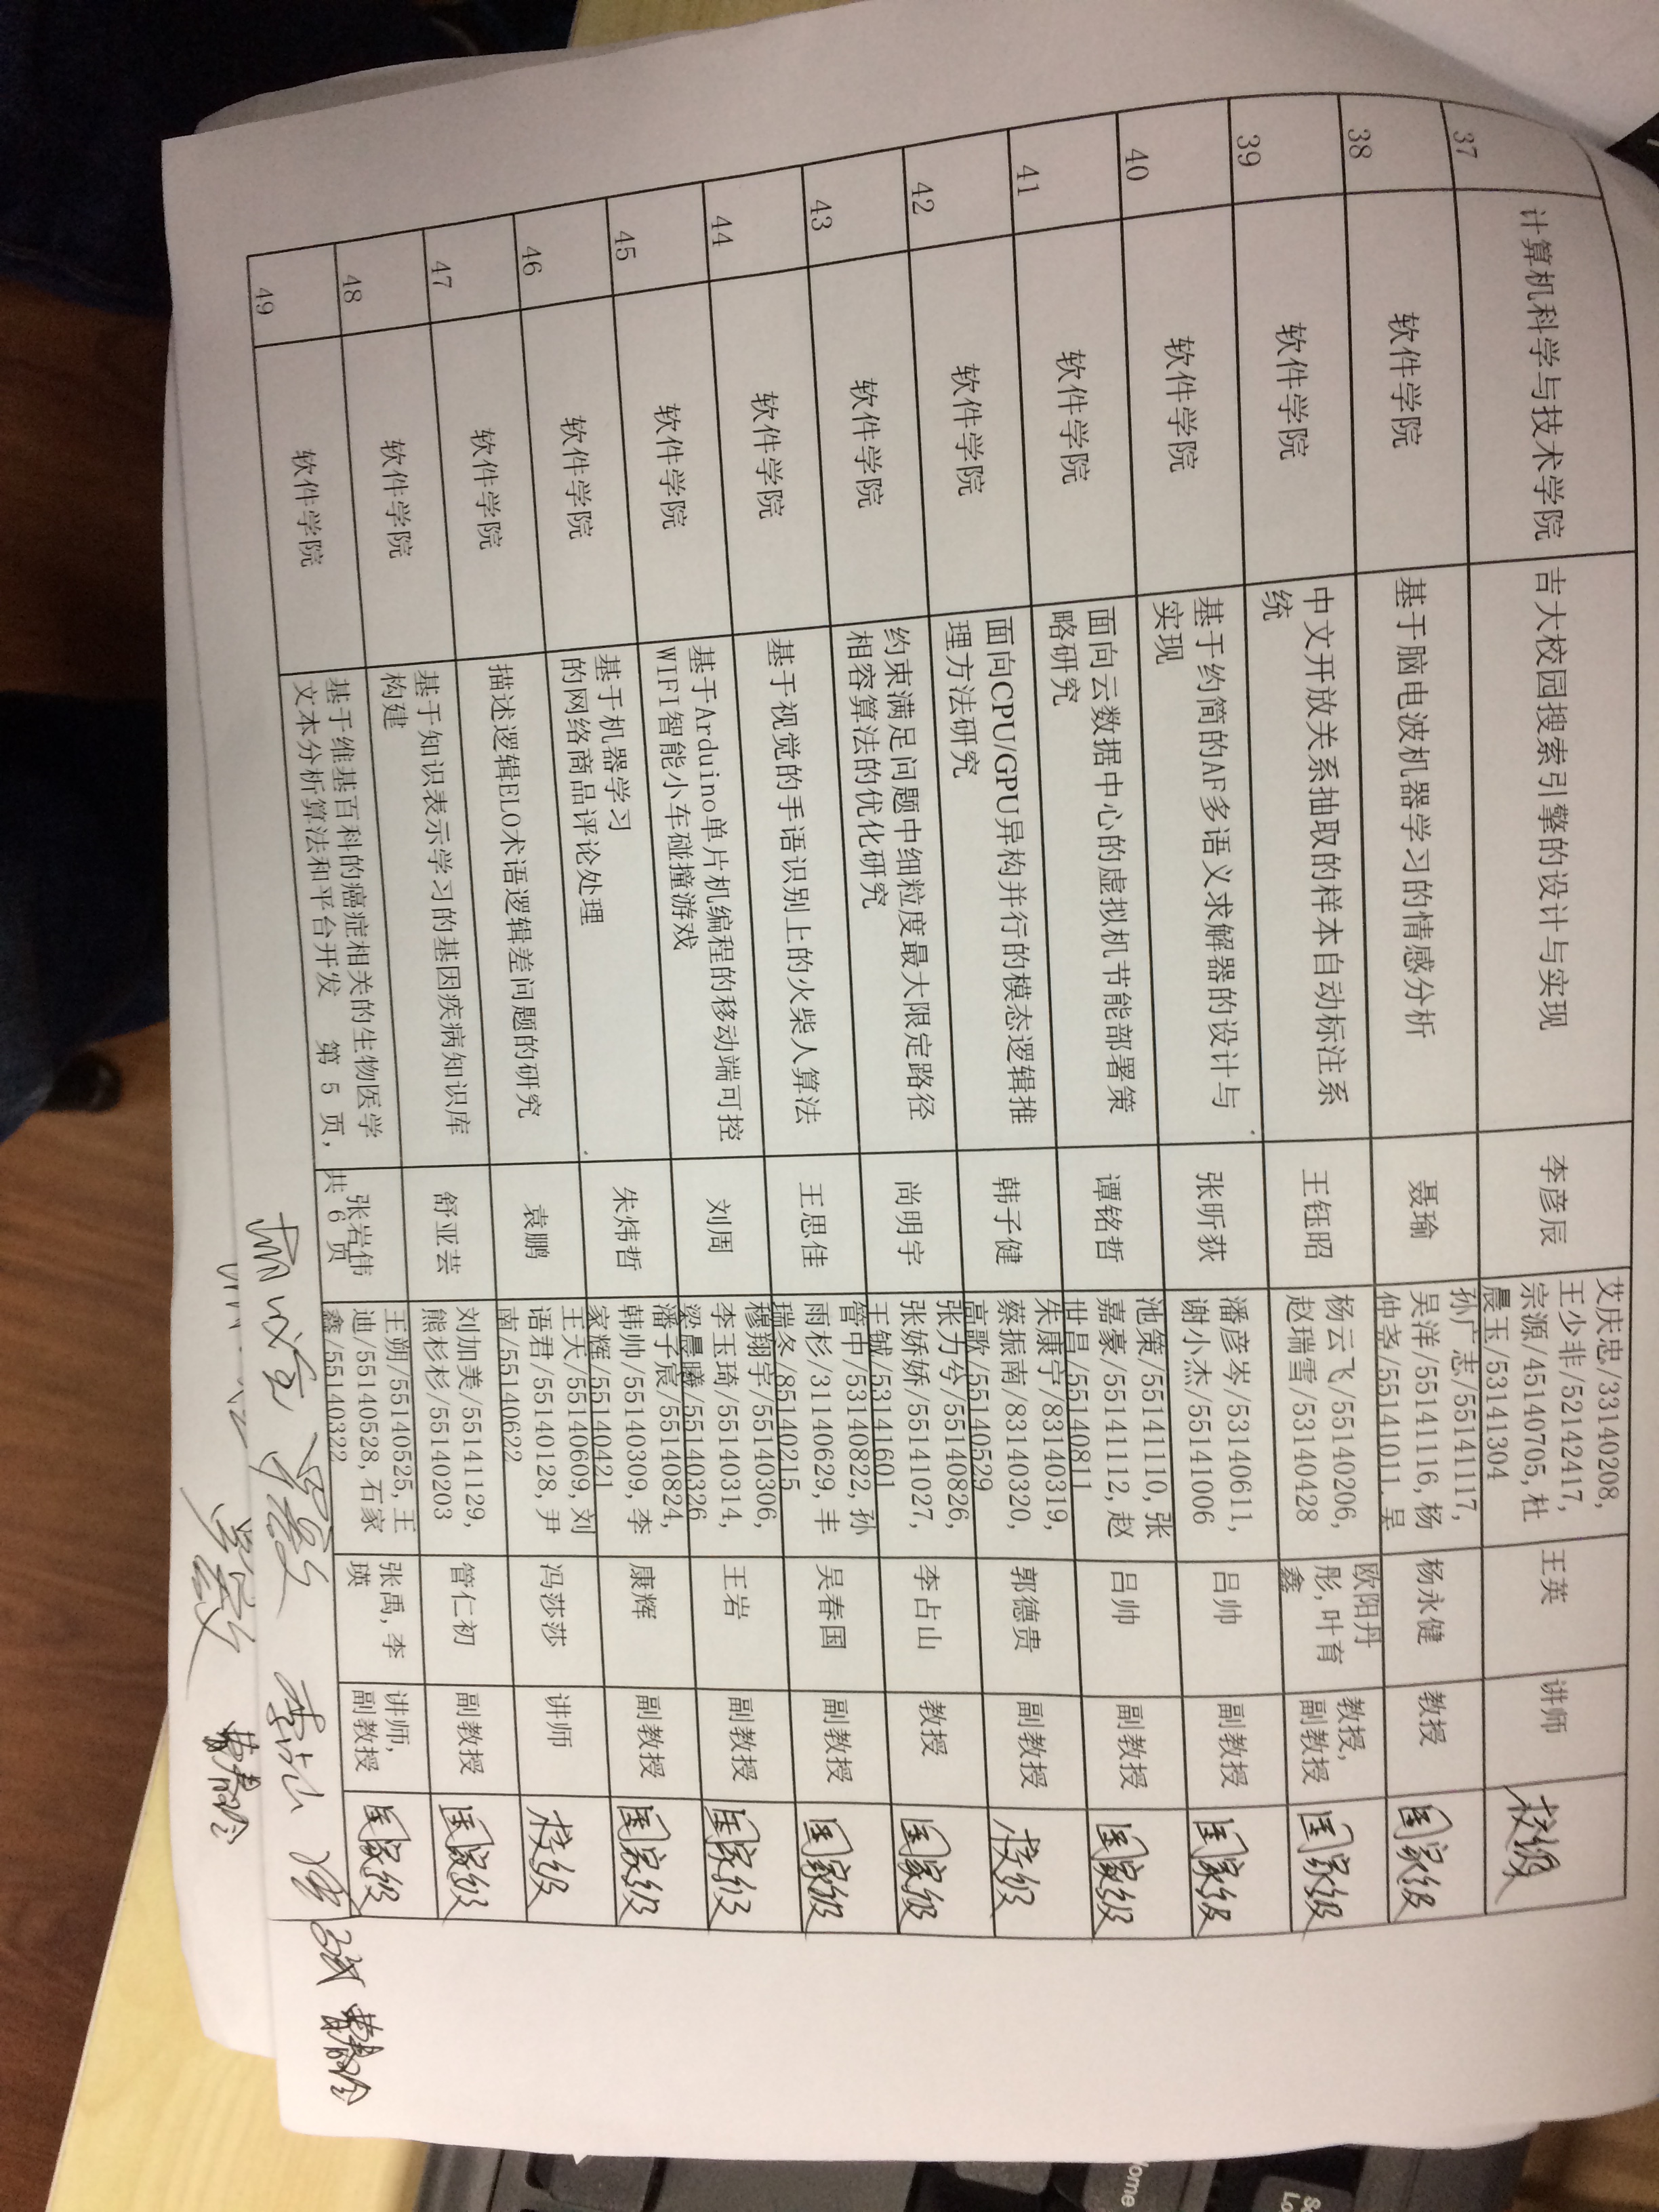 37
计算机科学与技术学院
吉大校园搜索引擎的设计与实现
李彦辰
艾庆忠/33140208,
王少非/52142417,
宗源/45140705,杜
晨玉/53141304
王英
讲师
校级
38
软件学院
基于脑电波机器学习的情感分析
聂瑜
孙广志/55141117,
吴洋/55141116,杨
仲尧/55141011,吴
杨永健
教授
国家级
39
软件学院
中文开放关系抽取的样本自动标注系
统
王钰昭
杨云飞/55140206,
赵瑞雪/53140428
欧阳丹
彤,叶育
鑫
教授,
副教授
国家级
40
软件学院
基于约简的AF多语义求解器的设计与
实现
张昕荻
潘彦岑/53140611,
谢小杰/55141006
吕帅
副教授
国家级
41
软件学院
面向云数据中心的虚拟机节能部署策
略研究
谭铭哲
池策/55141110,张
嘉豪/55141112,赵
世昌/55140811
吕帅
副教授
国家级
42
软件学院
面向CPU/GPU异构并行的模态逻辑推
理方法研究
韩子健
朱康宁/83140319,
蔡振南/83140320,
高歌/55140529
郭德贵
副教授
校级
43
软件学院
约束满足问题中细粒度最大限定路径
相容算法的优化研究
尚明宇
张力兮/55140826,
张娇娇/55141027,
王铖/53141601
李占山
教授
国家级
44
软件学院
基于视觉的手语识别上的火柴人算法
王思佳
管中/53140822,孙
雨杉/31140629,丰
瑞冬/85140215
吴春国
副教授
国家级
45
软件学院
基于Arduino单片机编程的移动端可控
WIFI智能小车碰撞游戏
刘周
穆翔宇/55140306,
李玉琦/55140314,
梁晨曦/55140326
王岩
副教授
国家级
46
软件学院
基于机器学习
的网络商品评论处理
朱炜哲
潘子宸/55140824,
韩帅/55140309,李
家辉/55140421
康辉
副教授
国家级
47
软件学院
描述逻辑ELO术语逻辑差问题的研究
袁鹏
王天/55140609,刘
语君/55140128,尹
南/55140622
冯莎莎
讲师
校级
48
软件学院
基于知识表示学习的基因疾病知识库
构建
舒亚芸
刘加美/55141129,
熊杉杉/55140203
管仁初
副教授
国家级
49
软件学院
基于维基百科的癌症相关的生物医学
文本分析算法和平台开发
张岩伟
王朔/55140525,王
迪/55140528,石家
鑫/55140322
张禹,李
瑛
讲师,
副教授
国家级
第 5 页, 共 6 页
李占山
曹春玲
曹春玲
Home